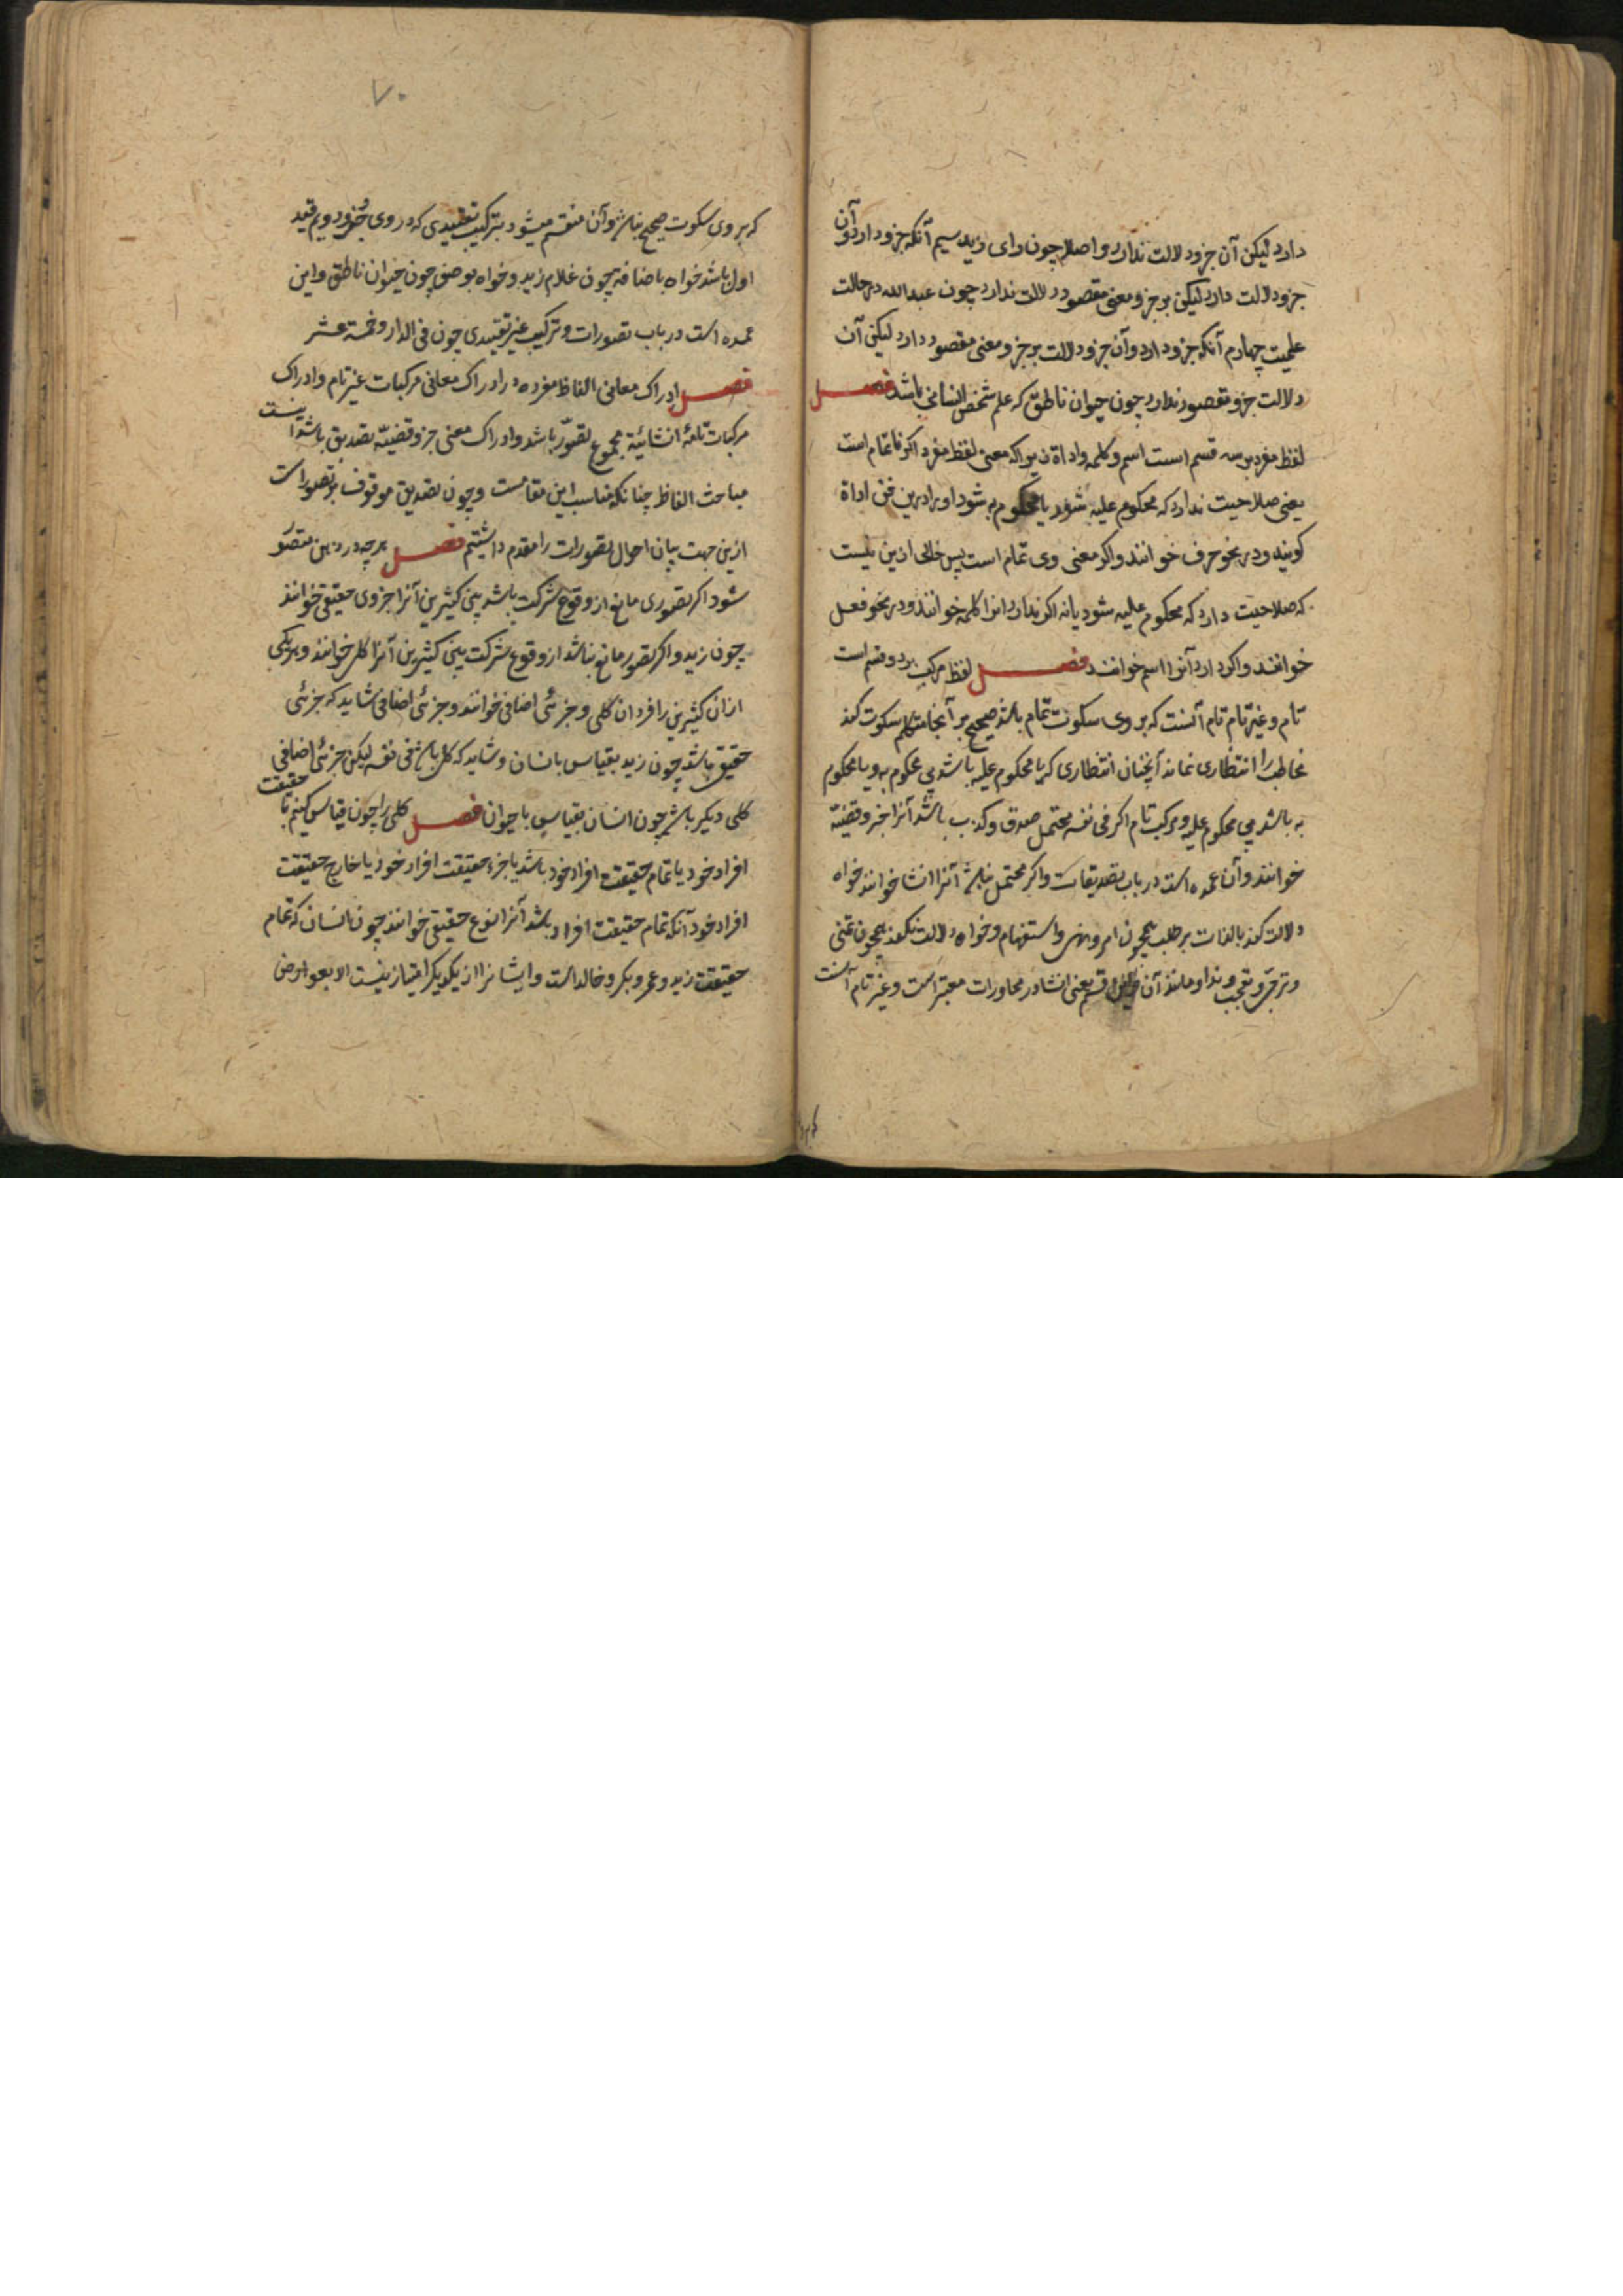 دارد لیکن آن جزو دلالت ندارد و اصلا چون زای زید سیم آنکه جزو دارد و آن
جزو دلالت دارد لیکن بر جزو معنی مقصود دلالت ندارد چون عبدالله در حالت
علمیت چهارم آنکه جزو دارد و آن جزو دلالت بر جزو معنی مقصود دارد لیکن آن
دلالت جزو مقصود ندارد چون حیوان ناطق که علم شخص انسانی باشد فصل
لفظ مفرد بر سه قسم است اسم و کلمه و اداة زیراکه معنی لفظ مفرد اکر ناتمام است
یعنی صلاحیت ندارد که محکوم علیه شود یا محکوم به شود او را درین فن اداة
کویند و در نحو حرف خوانند و اکر معنی وی تمام است پس خالی ازین نیست
که صلاحیت دارد که محکوم علیه شود یا نه اکر ندارد انرا کلمه خوانند و در نحو فعل
خوانند و اکر دارد آنرا اسم خوانند فصل لفظ مرکب بر دو قسم است
تام و غیر تام تام آنست که بر وی سکوت تمام باشد صحیح بر آنجا متکلم سکوت کند
مخاطب را انتظاری نماند آنچنان انتظاری که با محکوم علیه باشد بی محکوم به و یا محکوم
به باشد بی محکوم علیه و مرکب تام اکر فی نفسه محتمل صدق و کذب باشد آنرا خبر و قضیّه
خوانند و آن عمده است در باب تصدیقات و اکر محتمل نباشد آنرا انشا خوانند خواه
دلالت کند بالذات بر طلب همچون امر و نهی و استفهام و خواه دلالت نکند همچون تمنی
و ترجّی و تعجب و ندا و مانند آن و این قسم یعنی انشا در محاورات معتبر است و غیر تام آنست
۷۰
که بر وی سکوت صحیح نباشد و آن منقسم میشود بترکیب تقییدی که در وی جزو دویم قید
اول باشد خواه باضافه چون غلام زید و خواه بوصف چون حیوان ناطق و این
عمده است در باب تصورات و ترکیب غیر تقییدی چون فی الدار و خمسة عشر
فصل ادراک معانی الفاظ مفرده و ادراک معانی مرکبات غیر تام و ادراک
مرکبات تامّهٔ انشائیّه مجموع تصوّر باشد و ادراک معنی خبر و قضیّه تصدیق باشد اینست
مباحث الفاظ چنانکه مناسب این مقامست و چون تصدیق موقوف بر تصور است
ازین جهت بیان احوال تصورات را مقدم داشتیم فصل هر چه در ذهن متصوّر
شود اکر تصوری مانع از وقوع شرکت باشد بین کثیرین آنرا جزوی حقیقی خوانند
چون زید و اکر تصور مانع نباشد از وقوع شرکت بین کثیرین آنرا کلی خوانند و هر یکی
ازان کثیرین را فرد ان کلی و جزئی اضافی خوانند و جزئی اضافی شاید که جزئی
حقیقی باشد چون زید بقیاس بانسان و شاید که کلی باشد فی نفسه لیکن جزئی اضافی
کلی دیکر باشد چون انسان بقیاس با حیوان فصل کلی را چون قیاس کنیم با حقیقت
افراد خود یا تمام حقیقت افراد خود باشد یا جزء حقیقت افراد خود یا خارج حقیقت
افراد خود آنکه تمام حقیقت افراد باشد آنرا نوع حقیقی خوانند چون انسان که تمام
حقیقت زید و عمرو و بکر و خالد است و ایشانرا از یکدیکر امتیاز نیست الا بعوارض